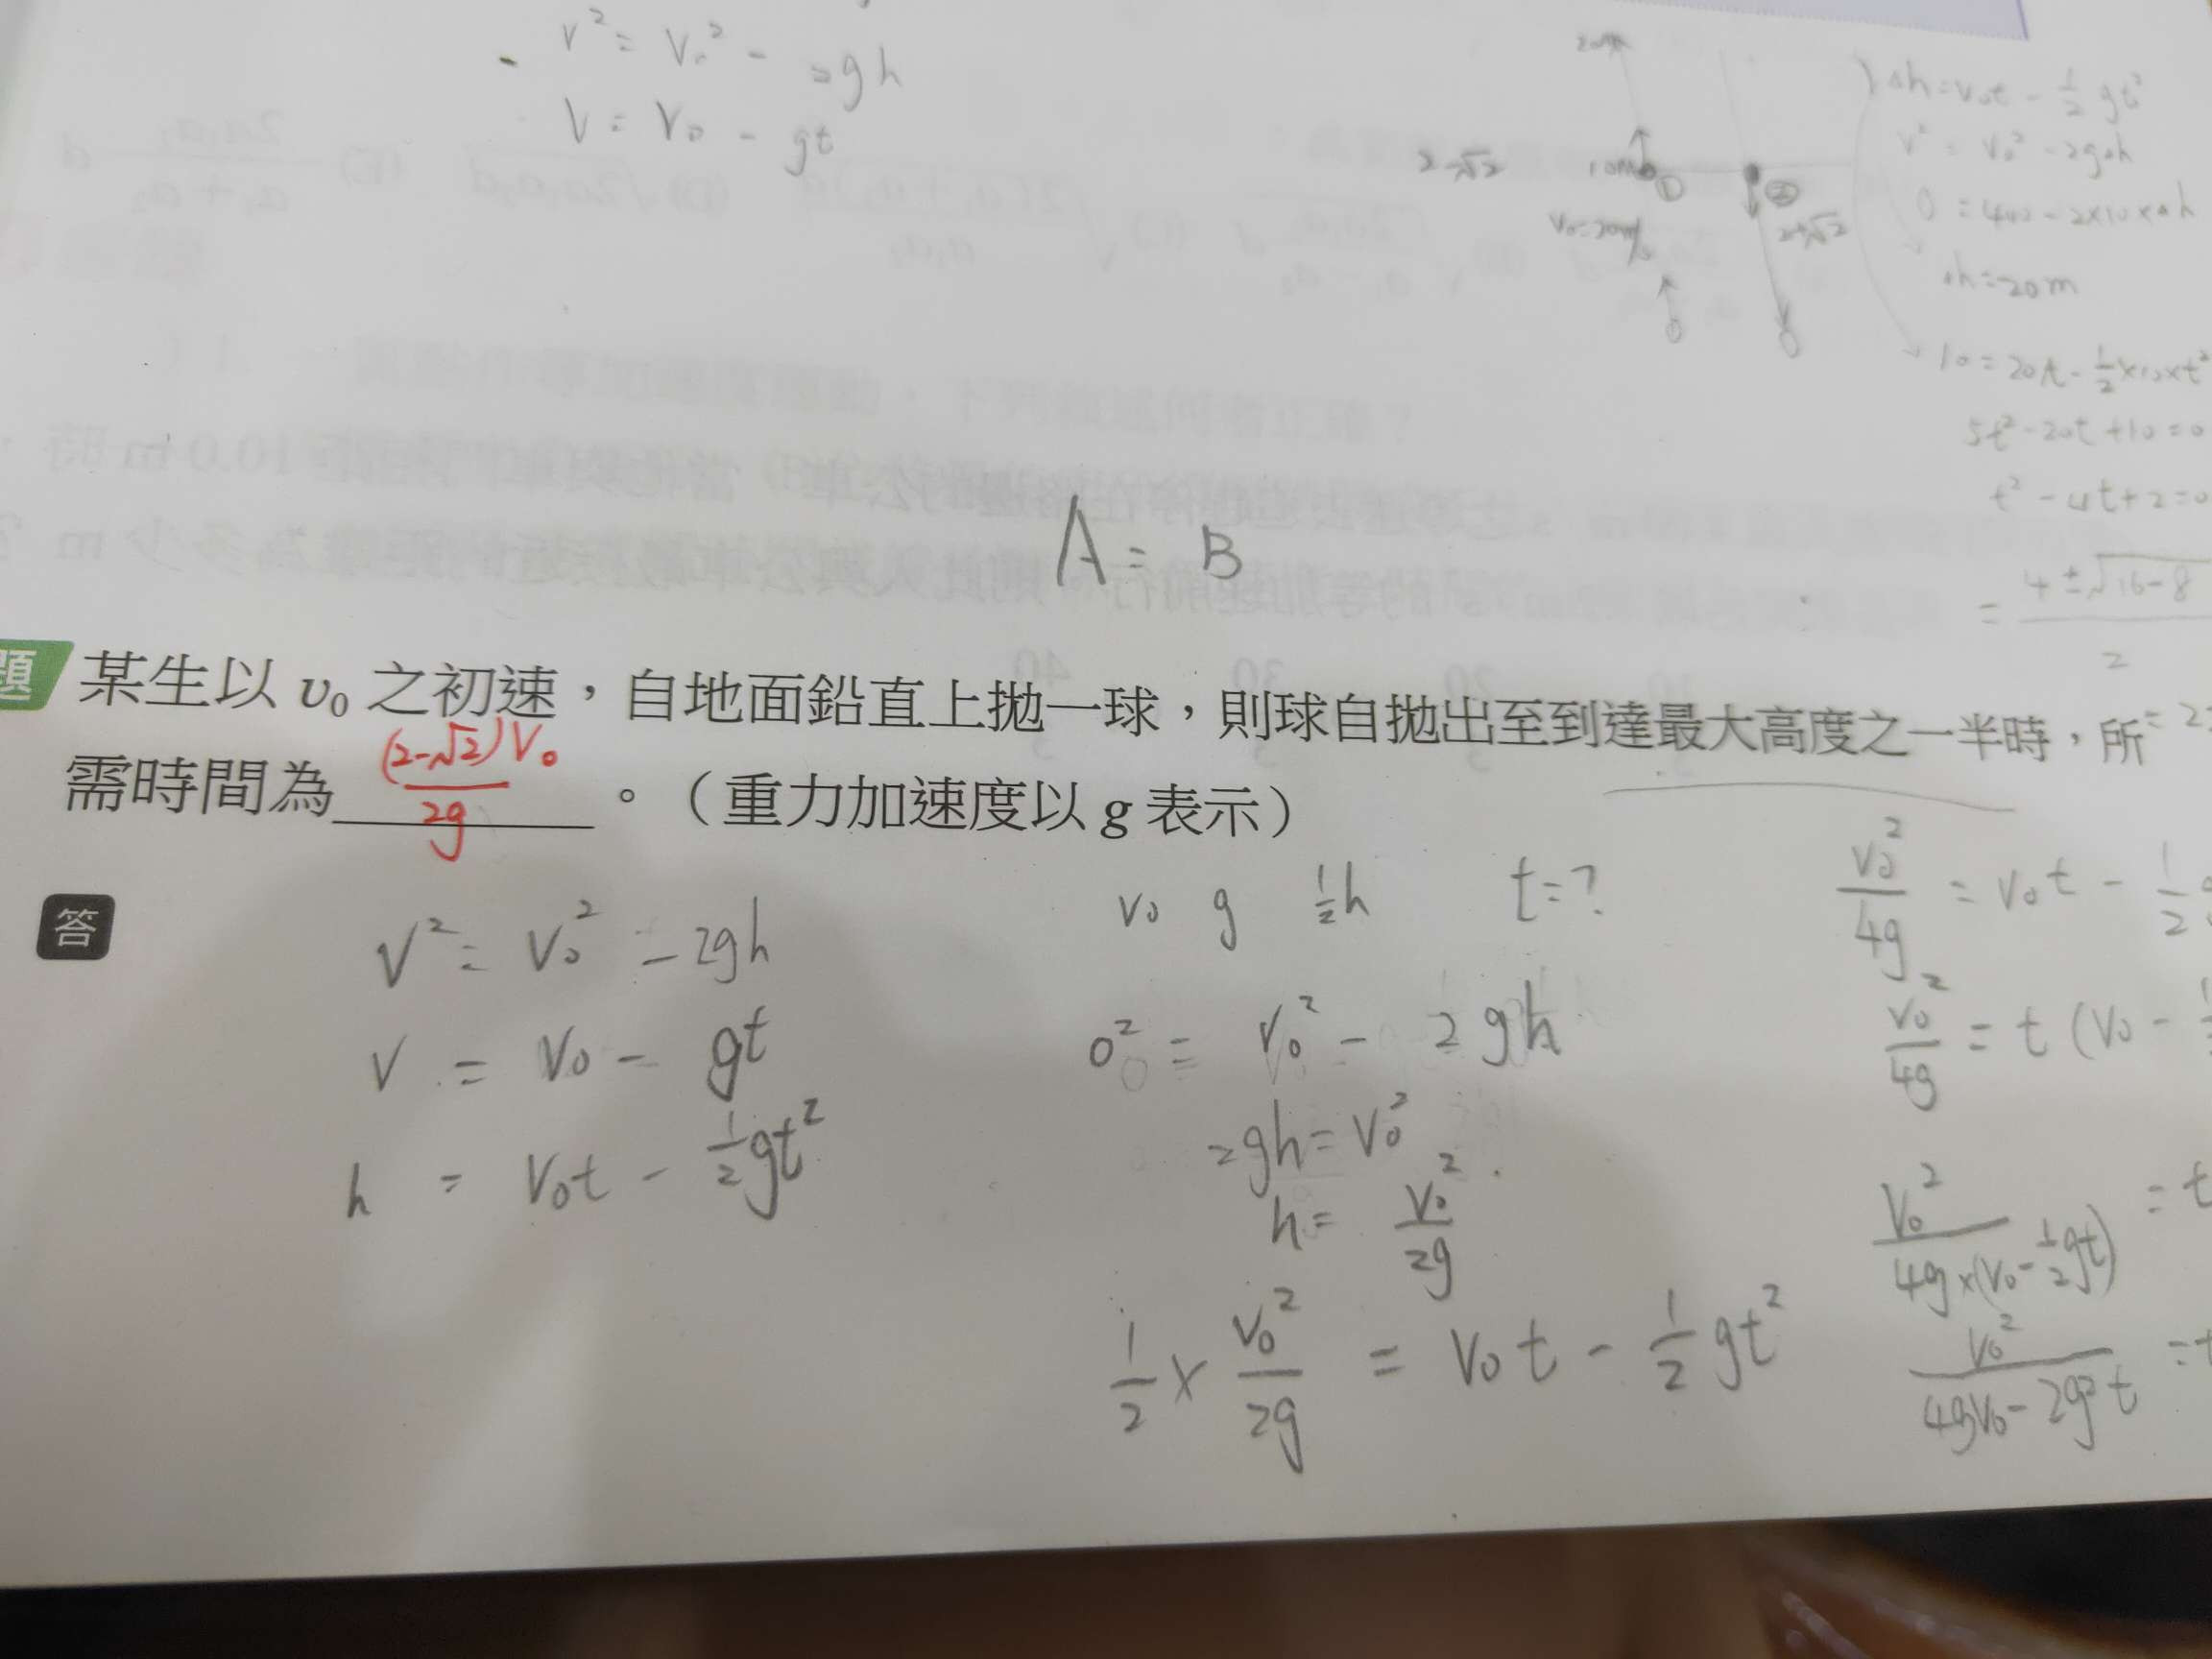 v² = v₀² - 2gh
v = v₀ - gt
Δh = v₀t - 1/2 gt²
v² = v₀² - 2gΔh
0 = 400 - 2×10×Δh
Δh = 20m
2-√2
10m
①
②
v₀=20m/s
2+√2
10 = 20t - 1/2×10×t²
5t² - 20t + 10 = 0
t² - 4t + 2 = 0
= (4±√16-8)/2
A = B
題 某生以 v₀ 之初速，自地面鉛直上拋一球，則球自拋出至到達最大高度之一半時，所
需時間為 (2-√2)v₀/2g 。（重力加速度以 g 表示）
答
v² = v₀² - 2gh
v = v₀ - gt
h = v₀t - 1/2 gt²
v₀ g 1/2h t=?
0² = v₀² - 2gh
2gh = v₀²
h = v₀²/2g
1/2 × v₀²/2g = v₀t - 1/2 gt²
v₀²/4g = v₀t - 1/2
v₀²/4g = t (v₀ -
v₀²/4g×(v₀-1/2gt) = t
v₀²/4gv₀-2g²t = t